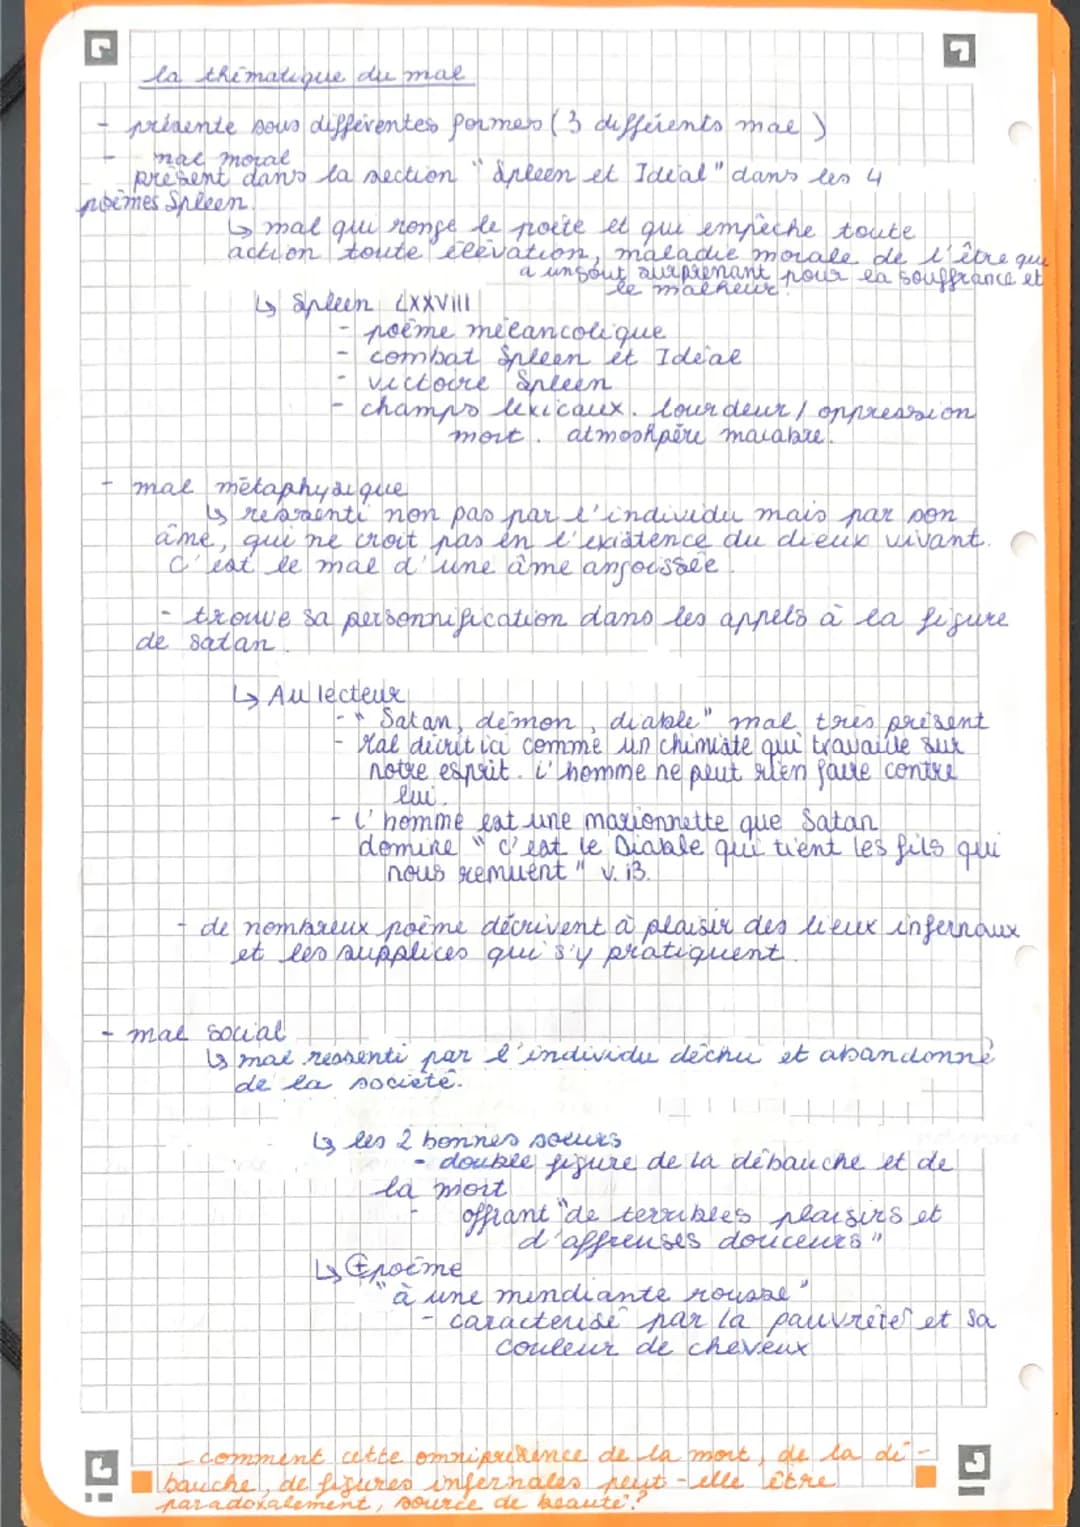 la thématique du mal
- présente sous différentes formes (3 différents mal)
- mal moral
présent dans la section "Spleen et Idéal" dans les 4
poèmes Spleen.
↳ mal qui ronge le poète et qui empêche toute
action toute élévation, maladie morale de l'être qui
a un gout surprenant pour la souffrance et
le malheur.
↳ Spleen LXXVIII
- poème mélancolique
- combat Spleen et Idéal
- victoire Spleen
- champs lexicaux. lourdeur / oppression
mort. atmoshpère macabre.
- mal métaphysique
↳ ressenti non pas par l'individu mais par son
âme, qui ne croit pas en l'existence du dieux vivant.
C'est le mal d'une âme angoissée
- trouve sa personnification dans les appels à la figure
de satan.
↳ Au lecteur
- "Satan, démon, diable" mal très présent
- Mal décrit ici comme un chimiste qui travaille sur
notre esprit. L'homme ne peut rien faire contre
lui.
- L'homme est une marionnette que Satan
domine "c'est le Diable qui tient les fils qui
nous remuent" v.13.
- de nombreux poème décrivent à plaisir des lieux infernaux
et les supplices qui s'y pratiquent.
- mal social
↳ mal ressenti par l'individu déchu et abandonné
de la société.
↳ les 2 bonnes soeurs
- double figure de la débauche et de
la mort
- offrant "de terribles plaisirs et
d'affreuses douceurs"
↳ ⊕ poème
"à une mendiante rousse"
- caractérisé par la pauvreté et sa
couleur de cheveux
- comment cette omniprésence de la mort, de la dé-
bauche, de figures infernales peut-elle être
paradoxalement, source de beauté ?